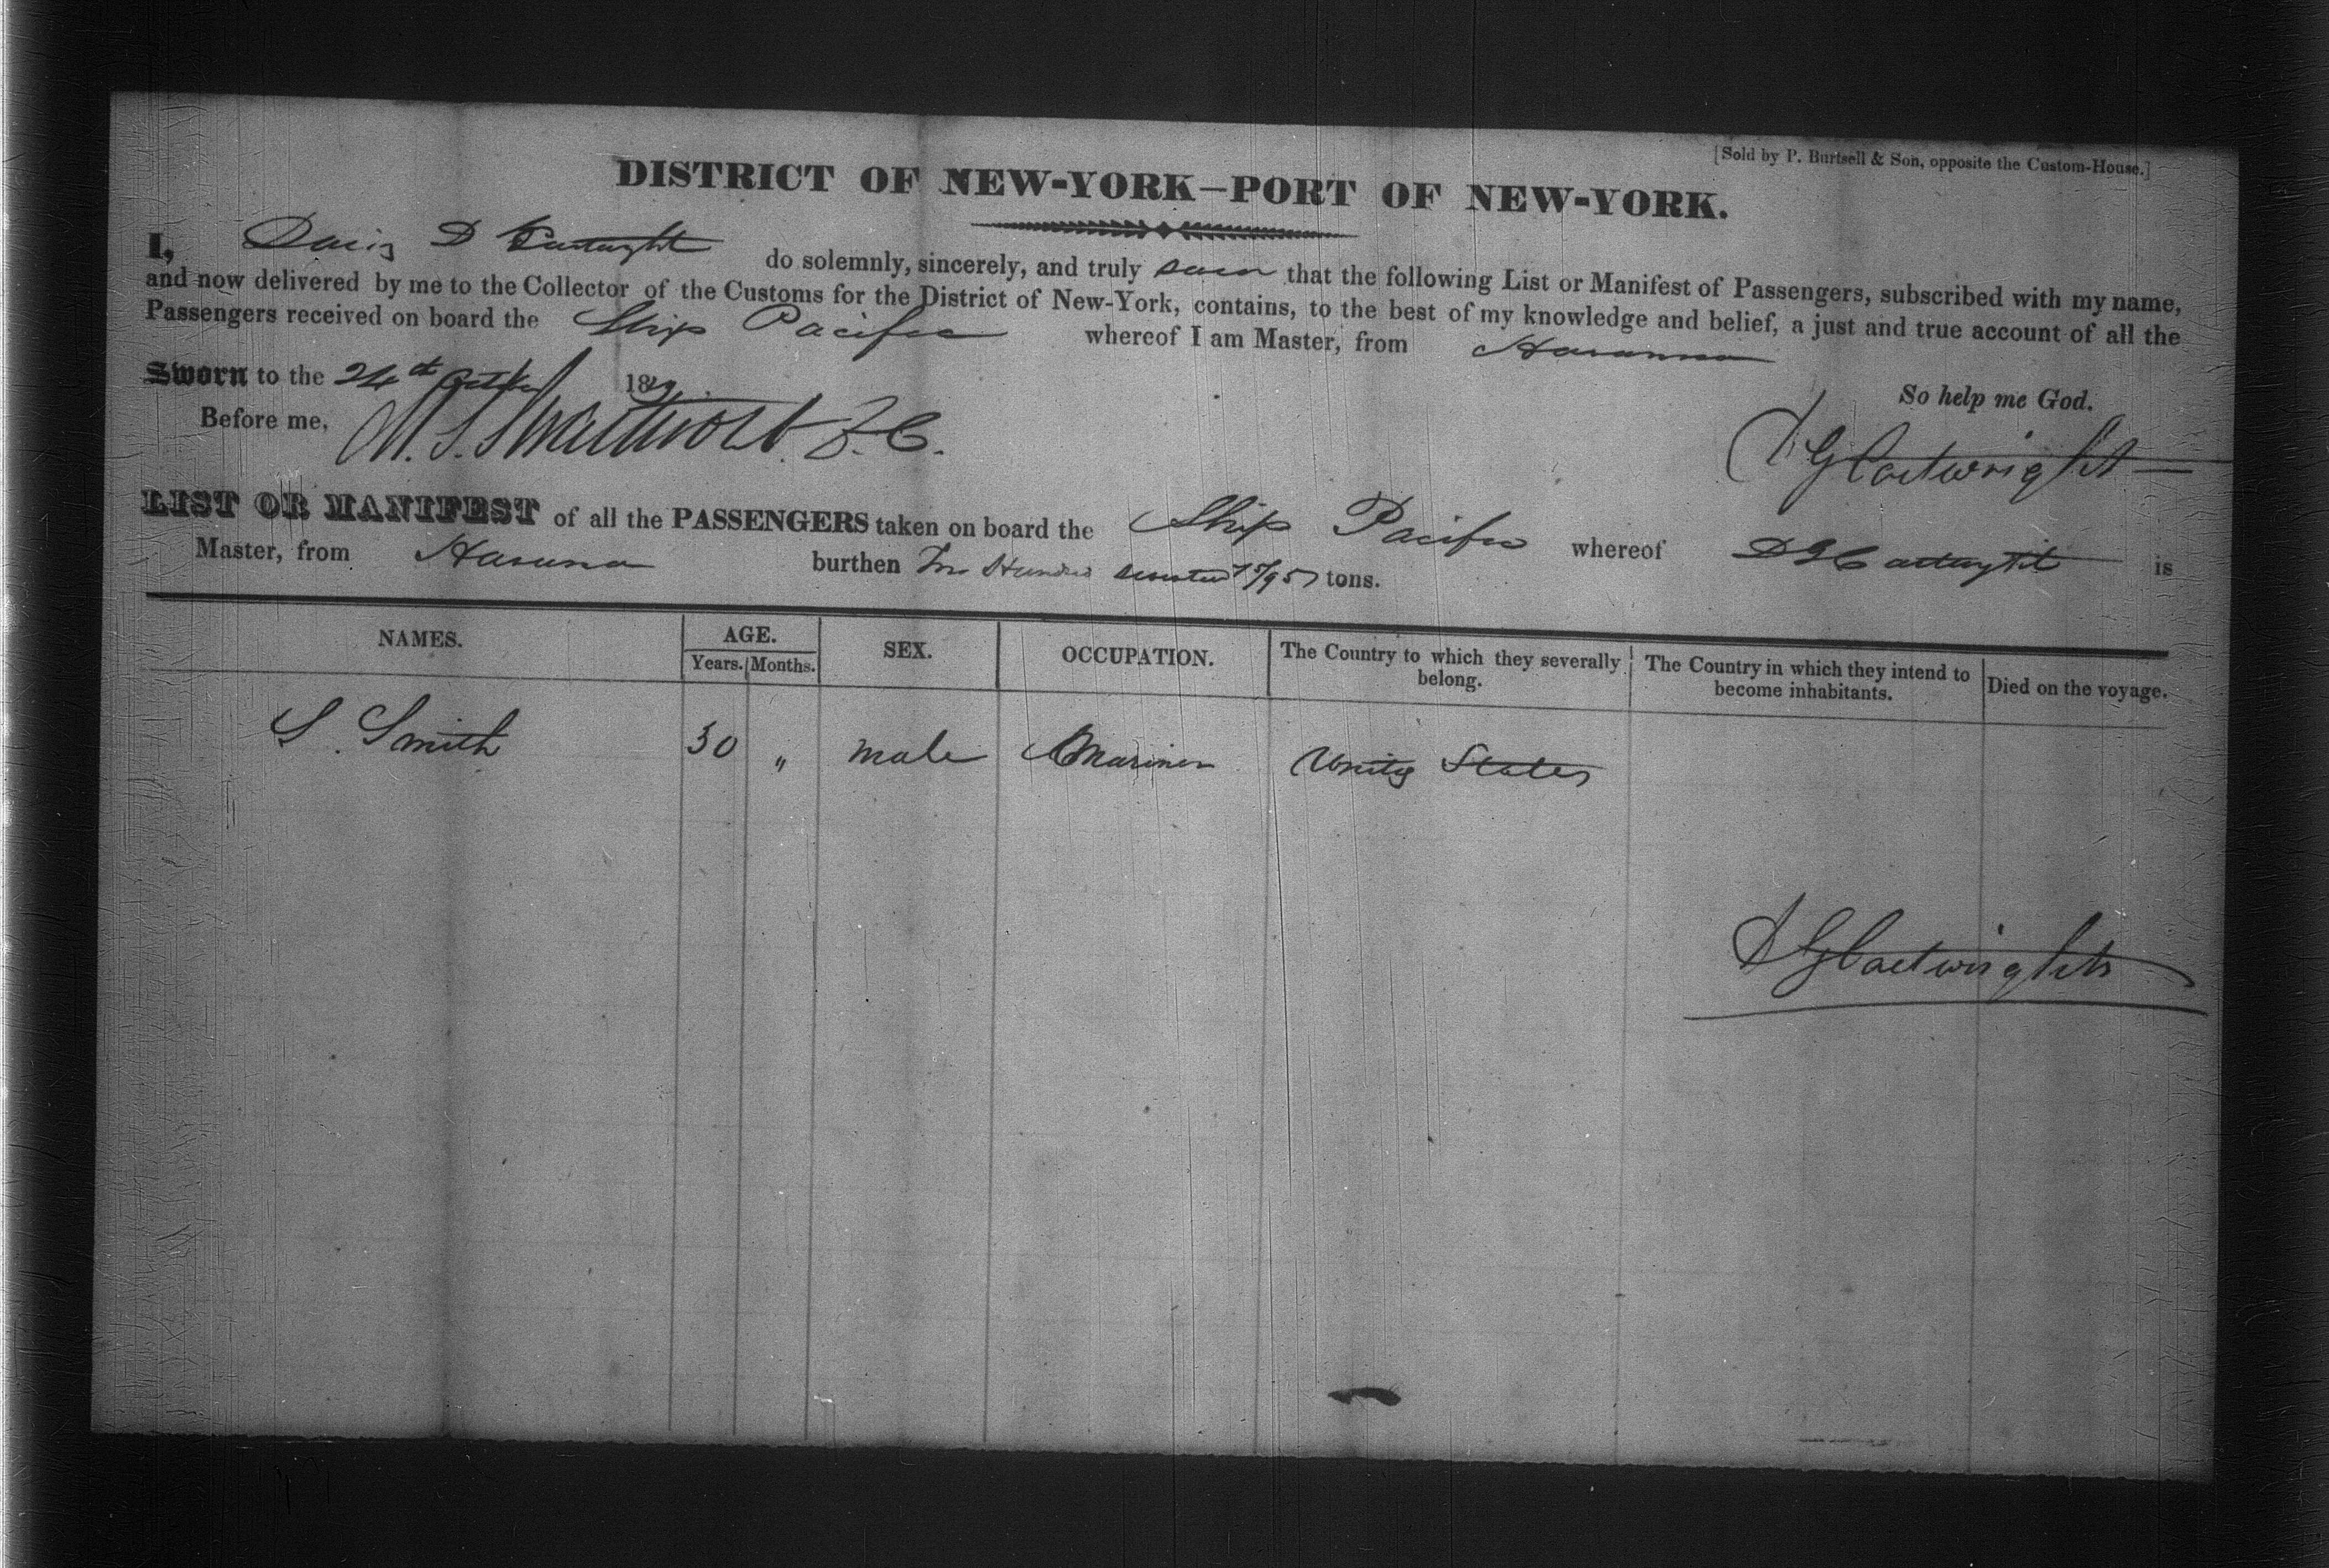 [Sold by P. Burtsell & Son, opposite the Custom-House.]
DISTRICT OF NEW-YORK—PORT OF NEW-YORK.
I, D Cartwright do solemnly, sincerely, and truly that the following List or Manifest of Passengers, subscribed with my name,
and now delivered by me to the Collector of the Customs for the District of New-York, contains, to the best of my knowledge and belief, a just and true account of all the
Passengers received on board the Ship Pacific whereof I am Master, from Havanna
Sworn to the 24th 18
So help me God.
Before me, M. S. Swartwout
D G Cartwright
LIST OR MANIFEST of all the PASSENGERS taken on board the Ship Pacific whereof D G Cartwright is
Master, from Havana burthen Hundred tons.
NAMES. AGE. SEX. OCCUPATION. The Country to which they severally belong. The Country in which they intend to become inhabitants. Died on the voyage.
Years. Months.
S. Smith 30 " male Mariner United States
D G Cartwright